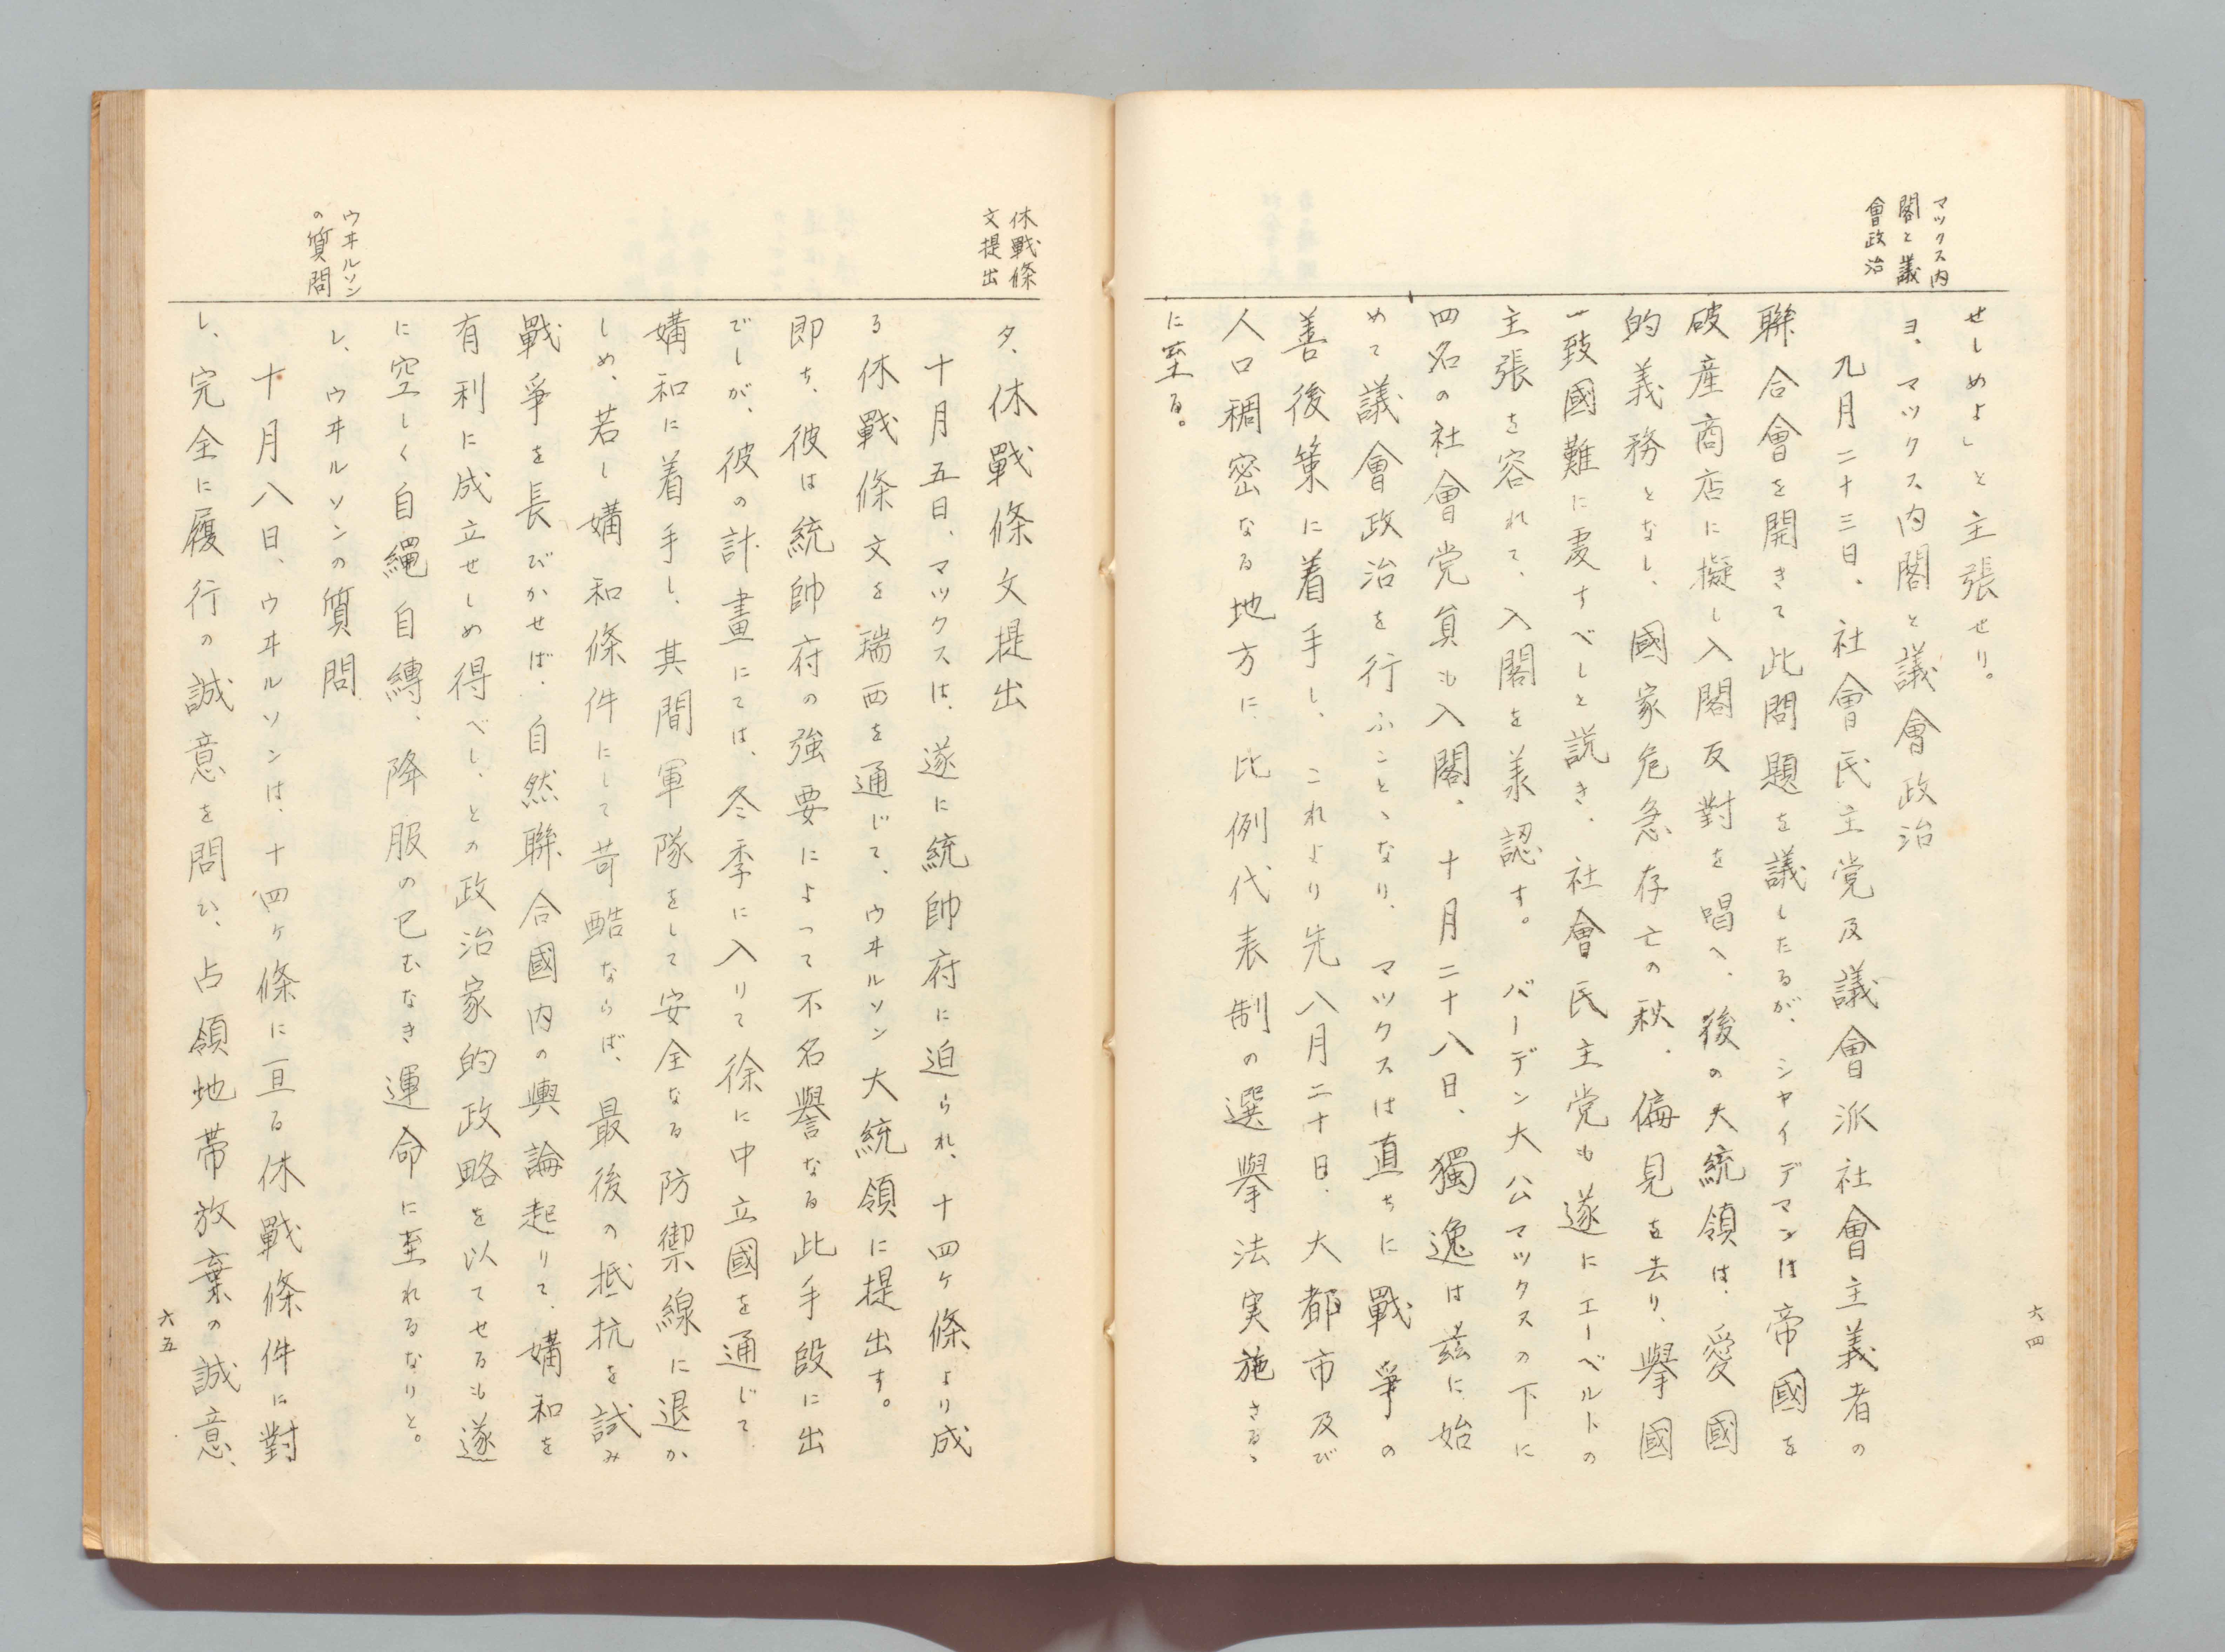 マックス内
閣と議
會政治
せしめよ」と主張せり。
ヨ、マックス内閣と議會政治
九月二十三日、社會民主党及議會派社會主義者の
聯合會を開きて此問題を議したるが、シャイデマンは帝國を
破産商店に擬し入閣反對を唱へ、後の大統領は、愛國
的義務となし、國家危急存亡の秋、偏見を去り、擧國
一致國難に処すべしと説き、社會民主党も遂にエーベルトの
主張を容れて、入閣を承認す。バーデン大公マックスの下に
四名の社會党員も入閣、十月二十八日、獨逸は茲に始
めて議會政治を行ふことゝなり、マックスは直ちに戰爭の
善後策に着手し、これより先八月二十日、大都市及び
人口稠密なる地方に、比例代表制の選擧法実施さるゝ
に至る。
六四
休戰條
文提出
タ、休戰條文提出
十月五日、マックスは、遂に統帥府に迫られ、十四ケ條より成
る休戰條文を瑞西を通じて、ウヰルソン大統領に提出す。
即ち、彼は統帥府の強要によって不名譽なる此手段に出
でしが、彼の計畫にては、冬季に入りて徐に中立國を通じて
媾和に着手し、其間軍隊をして安全なる防禦線に退か
しめ、若し媾和條件にして苛酷ならば、最後の抵抗を試み
戰爭を長びかせば、自然聯合國内の輿論起りて、媾和を
有利に成立せしめ得べし、との政治家的政略を以てせるも遂
に空しく自縄自縛、降服の已むなき運命に至れるなりと。
ウヰルソン
の質問
レ、ウヰルソンの質問
十月八日、ウヰルソンは、十四ケ條に亘る休戰條件に對
し、完全に履行の誠意を問ひ、占領地帯放棄の誠意、
六五